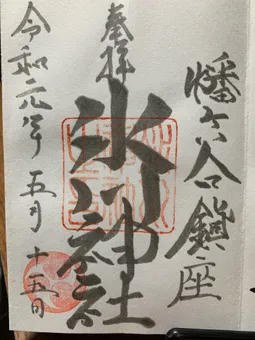 幡ヶ谷鎮座
奉拝
氷川神社
令和元年五月十五日